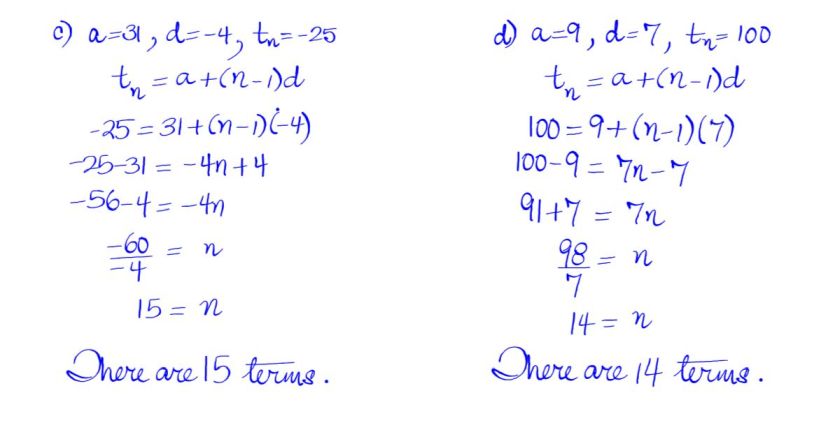 c) a=31, d=-4, tn=-25
tn = a+(n-1)d
-25 = 31+(n-1)(-4)
-25-31 = -4n+4
-56-4 = -4n
-60/-4 = n
15 = n
There are 15 terms.
d) a=9, d=7, tn=100
tn = a+(n-1)d
100 = 9+(n-1)(7)
100-9 = 7n-7
91+7 = 7n
98/7 = n
14 = n
There are 14 terms.